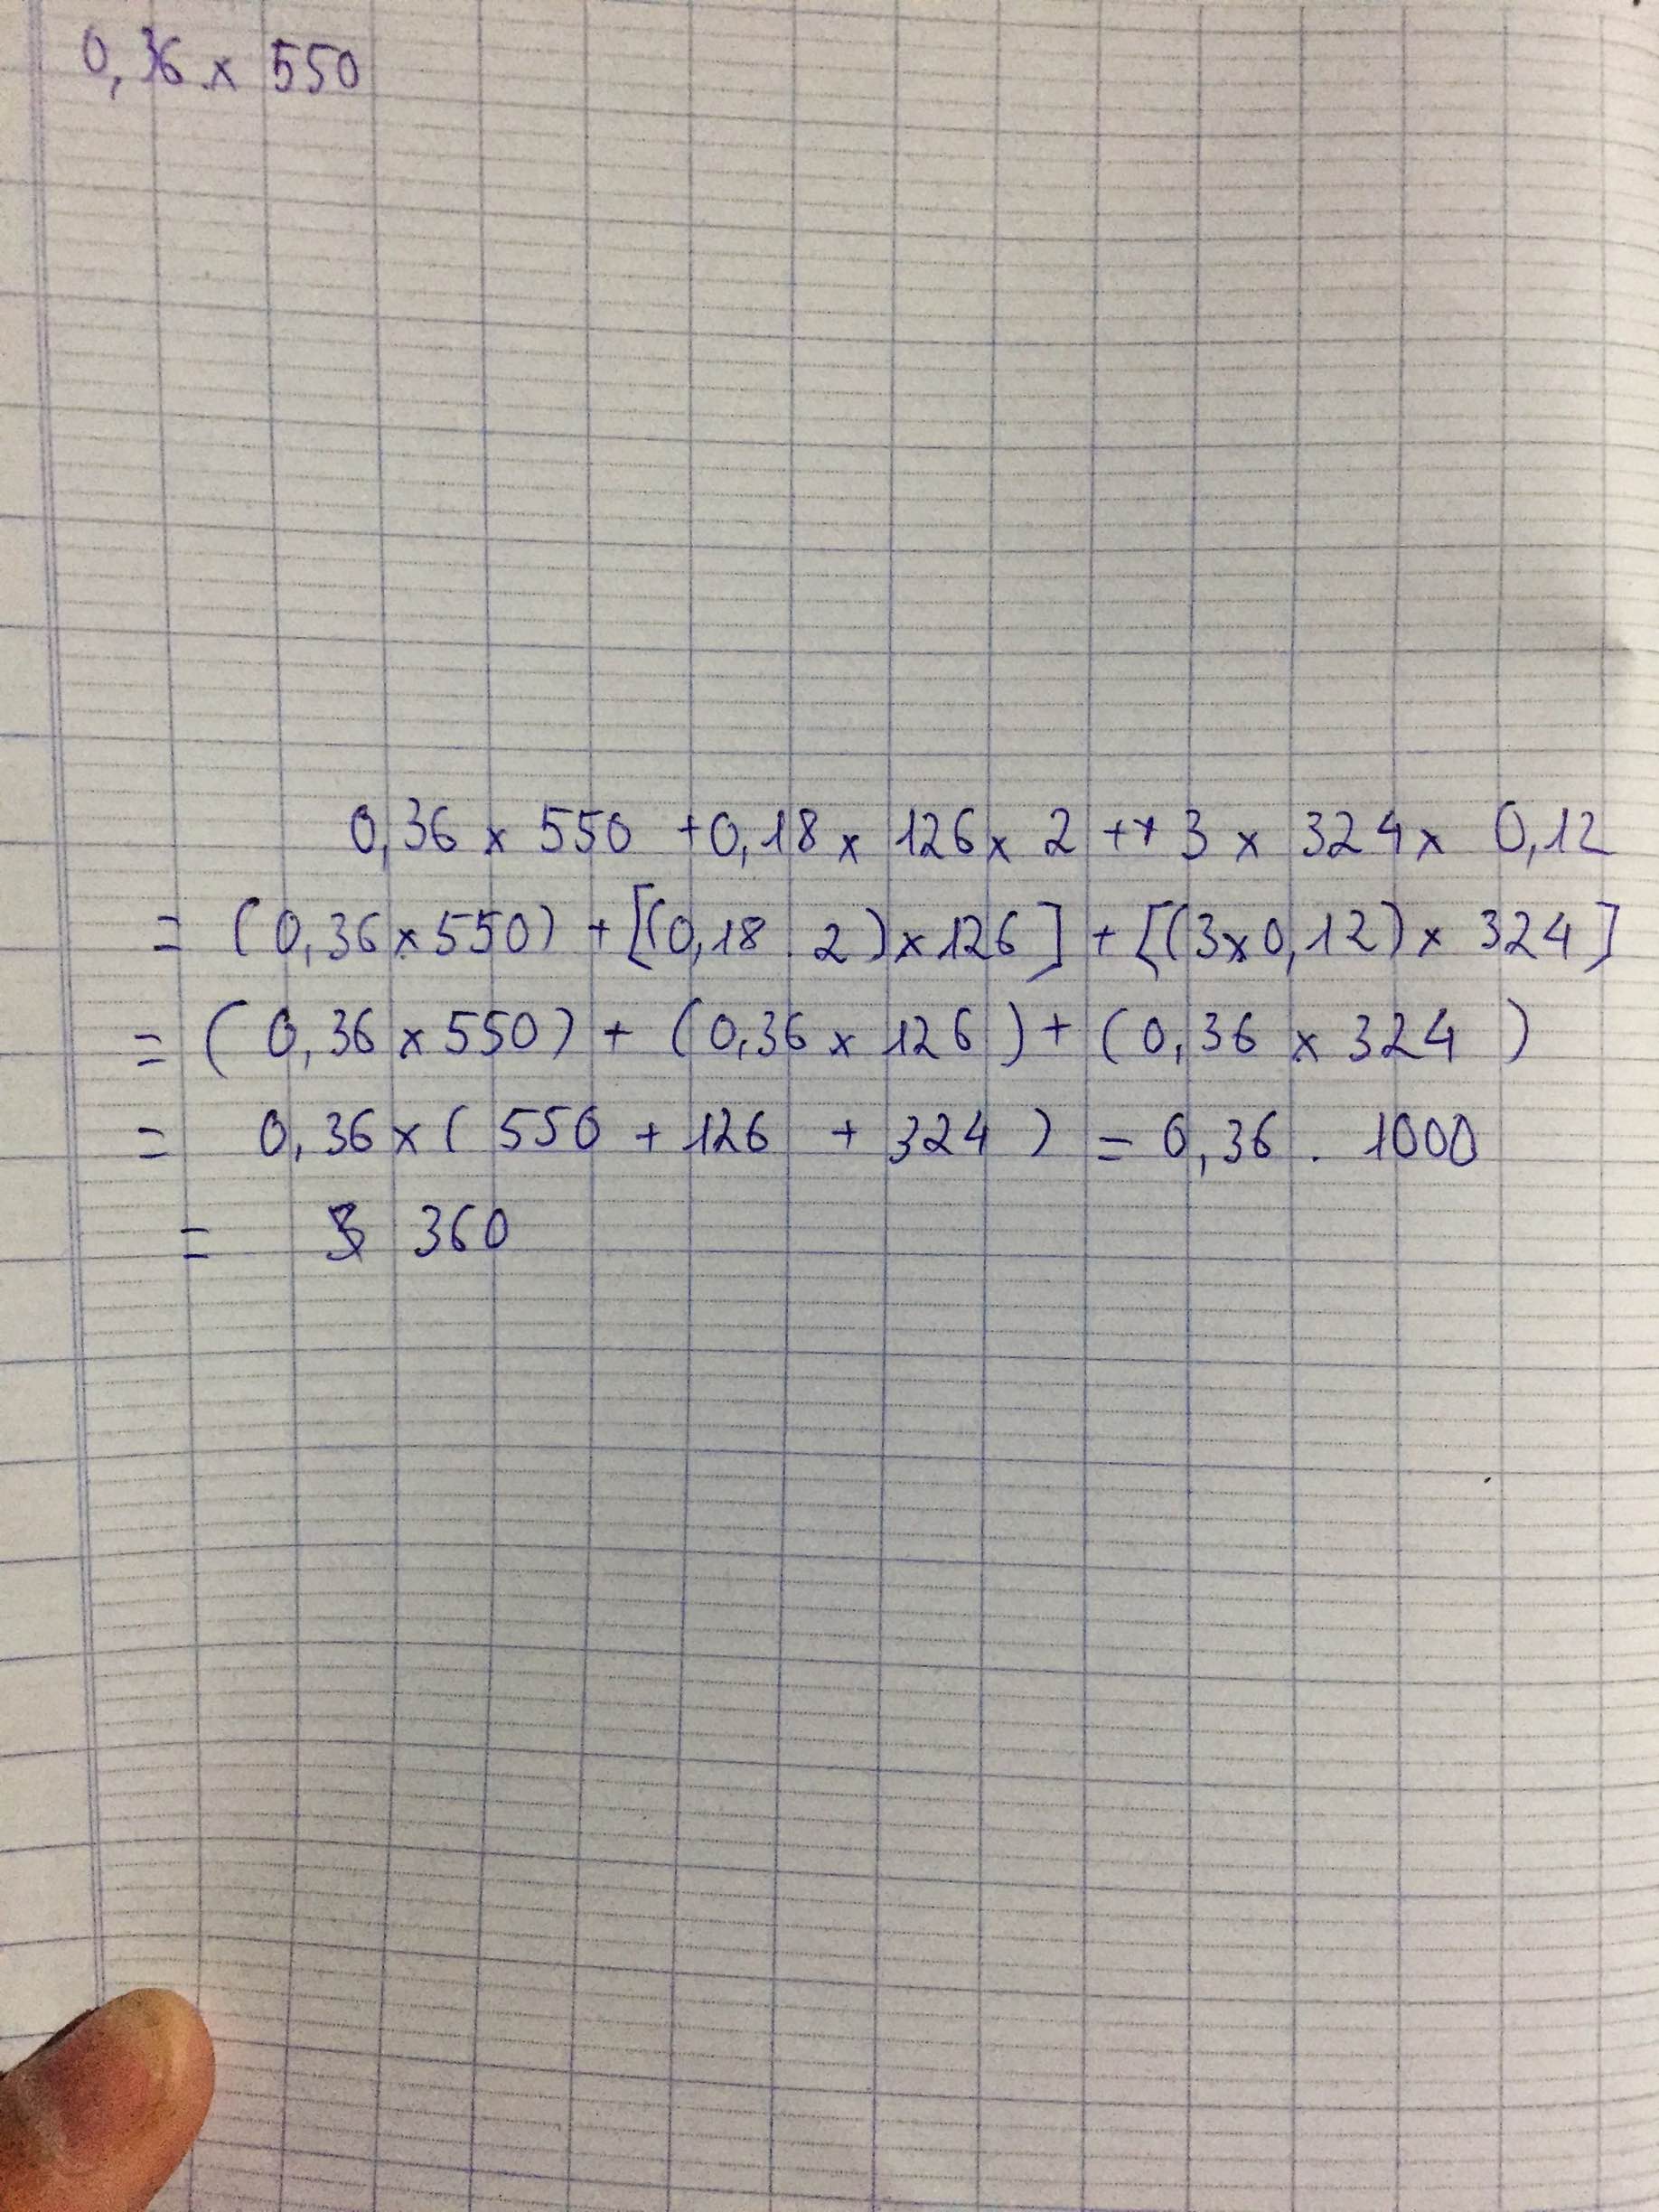 0,36 x 550
0,36 x 550 + 0,18 x 126 x 2 ++ 3 x 324 x 0,12
= (0,36 x 550) + [(0,18 . 2) x 126] + [(3 x 0,12) x 324]
= (0,36 x 550) + (0,36 x 126) + (0,36 x 324)
= 0,36 x (550 + 126 + 324) = 0,36 . 1000
= 360